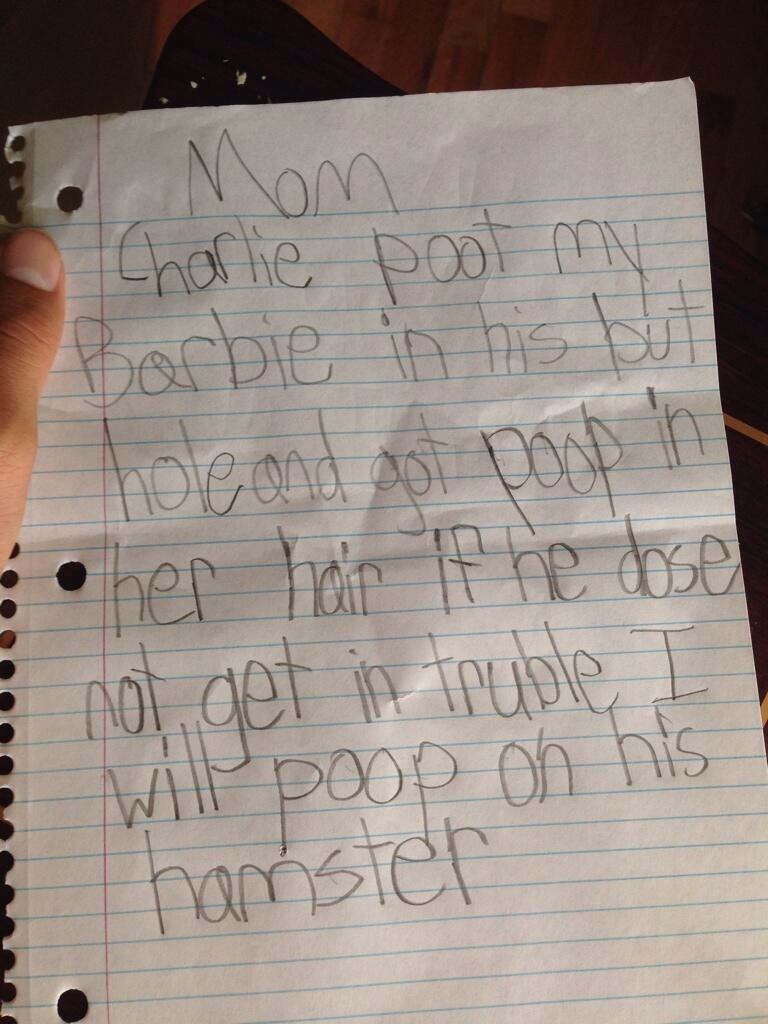 Mom
Charlie poot my
Barbie in his but
hole and got poop in
her hair if he dose
not get in truble I
will poop on his
hamster